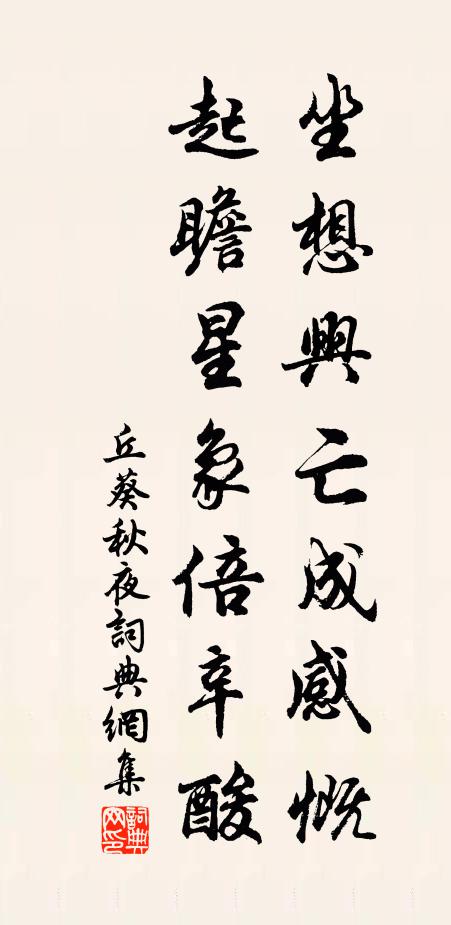 坐想興亡成感慨
起瞻星象倍辛酸
丘葵秋夜詞典網集
詞典網印